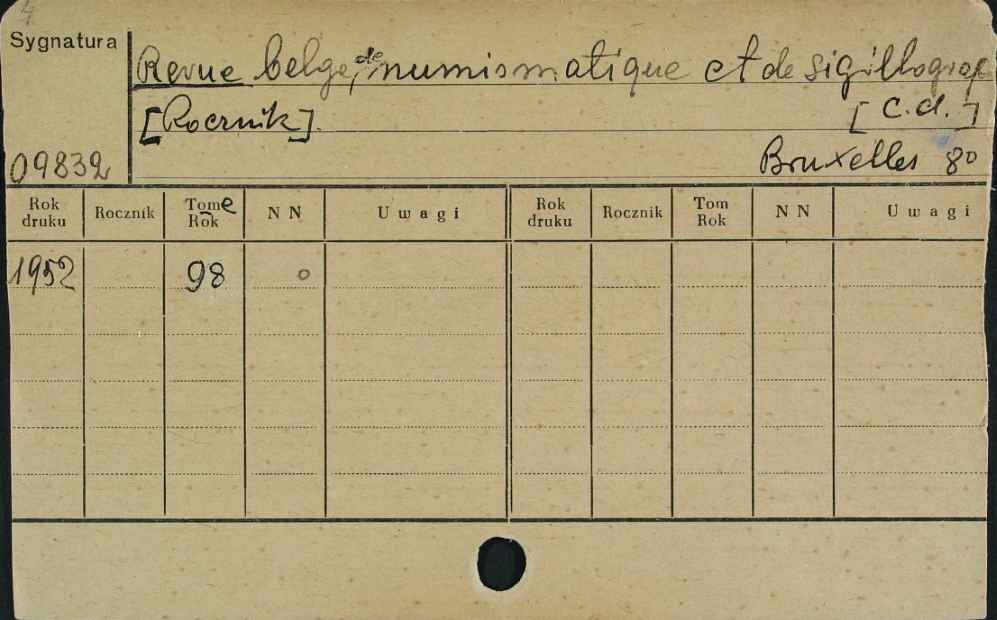 4
Sygnatura
Revue belge de numismatique et de sigillograf
[Rocznik]. [c.d.]
09832
Bruxelles 8o
Rok druku Rocznik Tome Rok N N Uwagi Rok druku Rocznik Tom Rok N N Uwagi
1952 98 o